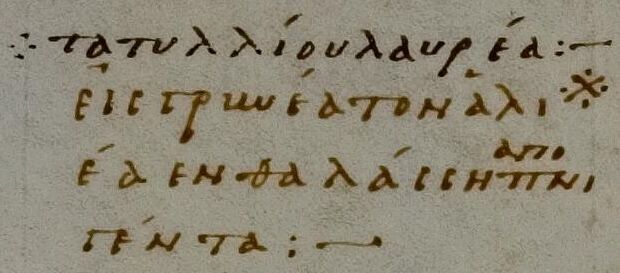 τατυλλίου λαυρέα :—
εἰς γρινέα τον ἁλι
έα εν θαλάσση αποπνι
γέντα :—